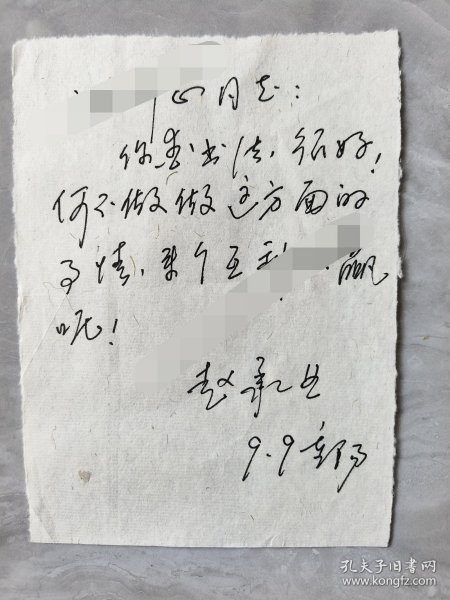 心同志：
你喜书法，很好！
何不做做这方面的
事情，来个互利
呢！
赵承业
9.9
孔夫子旧书网
www.kongfz.com